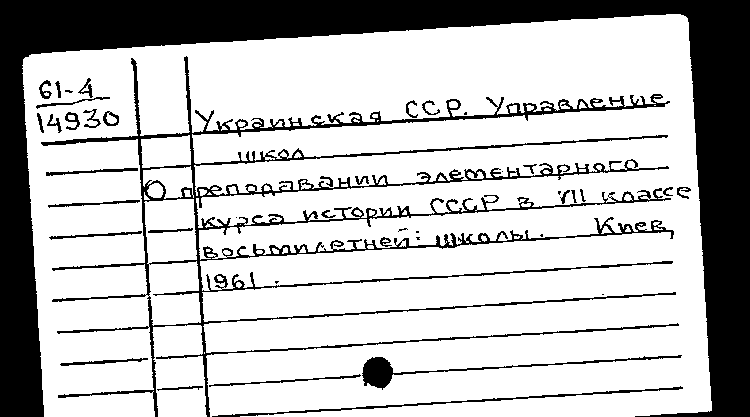 61-4
14930
Украинская ССР. Управление
школ
О преподавании элементарного
курса истории СССР в VII классе
восьмилетней: школы. Киев,
1961.